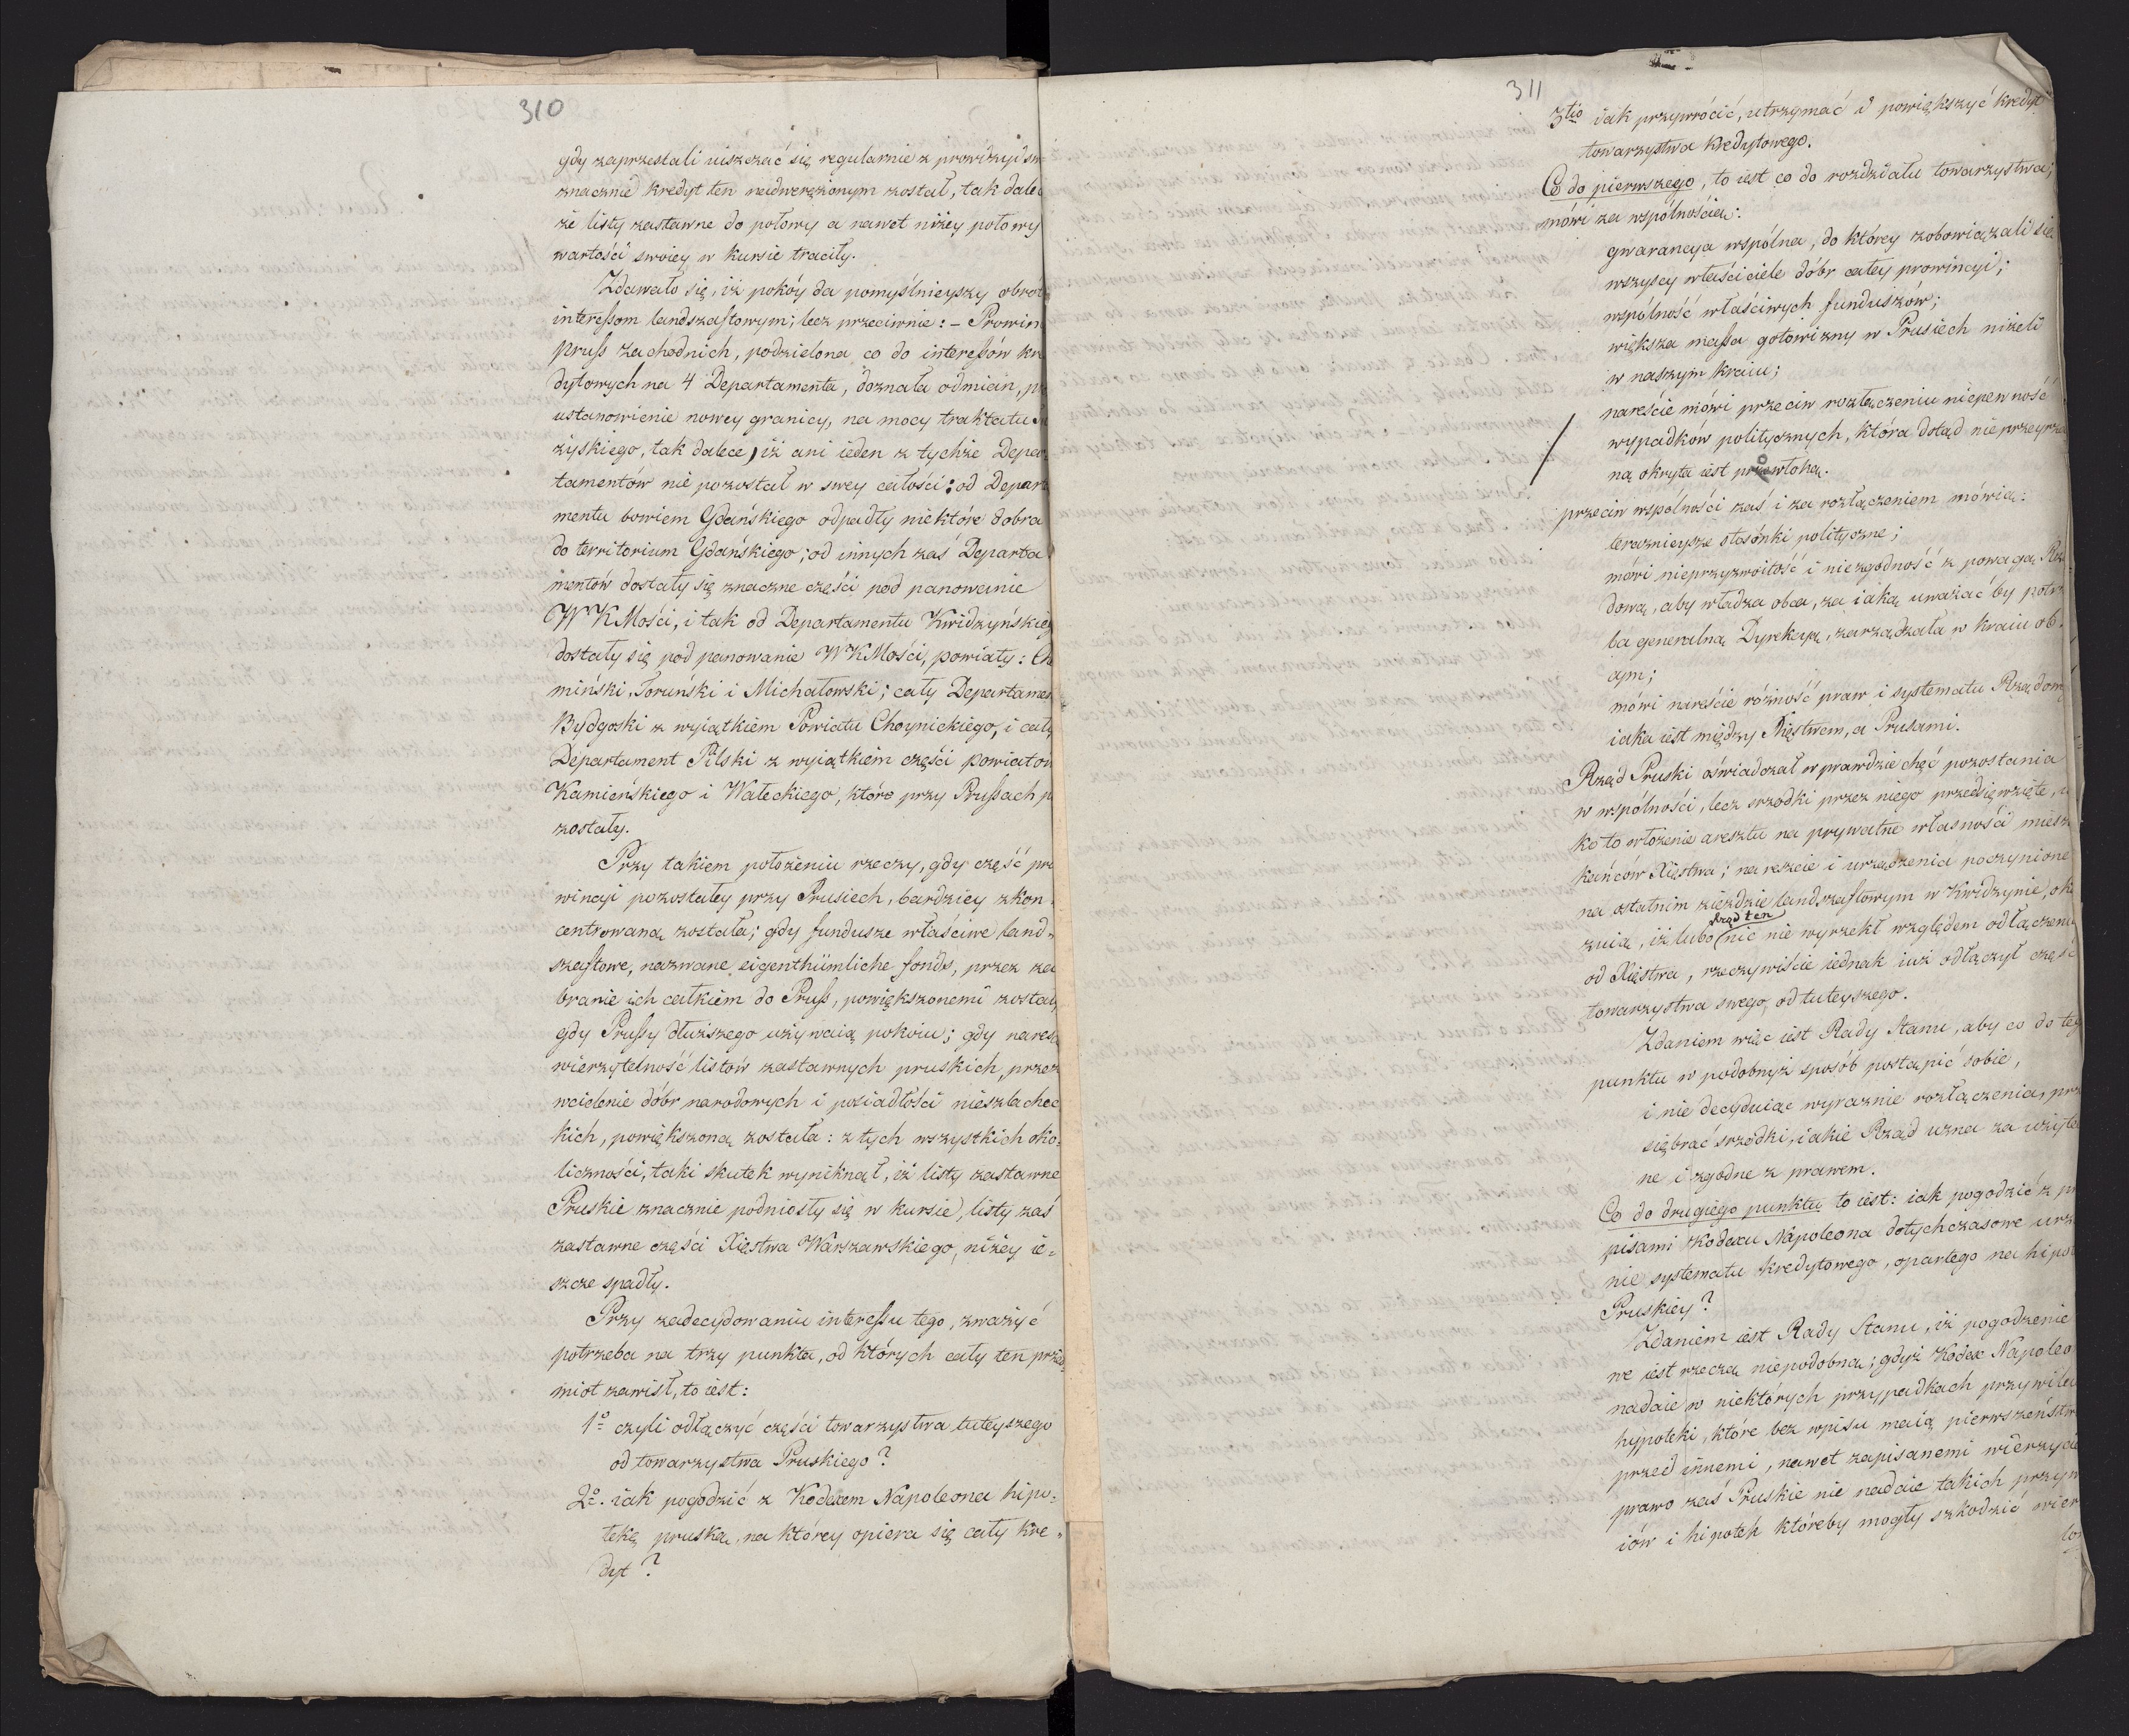 310
gdy zaprzestali uiszczać się regularnie z prowizyi sw
znacznie kredyt ten nadwerężonym został, tak dalec
że listy zastawne do połowy a nawet niżey połowy
wartości swoiey w kursie traciły.
Zdawało się, iż pokóy da pomyślnieyszy obrot
interessom landszaftowym; lecz przeciwnie: – Prowin
Pruss zachodnich, podzielona co do interessów kre
dytowych na 4 Departamenta, doznała odmian, p
ustanowienie nowey granicy, na mocy traktatu
zyskiego, tak dalece, iż ani ieden z tychże Depar
tamentów nie pozostał w swey całości: od Depart
mentu bowiem Gdańskiego odpadły niektóre dobra
do territorium Gdańskiego; od innych zaś Departa
mentów dostały się znaczne części pod panowanie
WKMości, i tak od Departamentu Kwidzyńskieg
dostały się pod panowanie WKMości, powiaty: Che
miński, Toruński i Michałowski; cały Departamen
Bydgoski z wyiątkiem Powiatu Choynickiego, i cały
Departament Pilski z wyiątkiem części powiatów
Kamieńskiego i Wałeckiego, które przy Prussach p
zostały.
Przy takiem położeniu rzeczy, gdy część pro
wincyi pozostałey przy Prusiech, bardziey zkon-
centrowaną została; gdy fundusze właściwe land-
szaftowe, nazwane eigenthümliche fonds, przez za
branie ich całkiem do Pruss, powiększonemi zostały
gdy Prussy dłuższego używaią pokoiu; gdy naresz
wierzytelność listów zastawnych pruskich, przez
wcielenie dóbr narodowych i posiadłości nieszlachec
kich, powiększoną została: z tych wszystkich oko-
liczności, taki skutek wyniknął, iż listy zastawne
Pruskie znacznie podniosły się w kursie, listy zaś
zastawne części Xięstwa Warszawskiego, niżey ie-
szcze spadły.
Przy zadecydowaniu interessu tego, zważyć
potrzeba na trzy punkta, od których cały ten przed
miot zawisł, to iest:
1º czyli odłączyć części towarzystwa tuteyszego
od towarzystwa Pruskiego?
2º. iak pogodzić z Kodexem Napoleona hipo-
tekę pruską, na którey opiera się cały kre-
dyt?
311
3tio iak przywrócić, utrzymać i powiększyć kredyt
towarzystwa kredytowego.
Co do pierwszego, to iest co do rozdziału towarzystwa;
mówi za wspólnością:
gwarancya wspólna, do którey zobowiązali się
wszyscy właściciele dóbr całey prowincyi;
wspólność właściwych funduszów;
większa massa gotowizny w Prusiech niżeli
w naszym kraiu;
nareście mówi przeciw rozłączeniu niepewność
wypadków politycznych, która dotąd nieprzeyrza
ną okryta iest powłoką.
przeciw wspólności zaś i za rozłączeniem mówią:
teraznieysze stósónki polityczne;
mówi nieprzyzwoitość i niezgodność z powagą Rzą
dową, aby władza obca, za iaką uważać by potrze
ba generalną Dyrekcyą, zarządzała w kraiu ob-
cym;
mówi nareście różność praw i systematu Rządow
iaka iest między Xięstwem, a Prusami.
Rząd Pruski oświadczał wprawdzie chęć pozostania
w wspólności, lecz srzodki przez niego przedsięwzięte,
ko to włożenie aresztu na prywatne własności miesz
kańców Xięstwa; nareszcie i urządzenia poczynione
na ostatnim zieździe landszaftowym w Kwidzynie, oka
zuią, iż lubo rząd ten nic nie wyrzekł względem odłączenia
od Xięstwa, rzeczywiście iednak iuż odłączył część
towarzystwa swego, od tuteyszego.
Zdaniem więc iest Rady Stanu, aby co do teg
punktu w podobnyż sposób postąpić sobie,
i nie decyduiąc wyraznie rozłączenia, prz
sięśbrać srzodki, iakie Rząd uzna za użytec
ne i zgodne z prawem.
Co do drugiego punktu to iest: iak pogodzić z prz
pisami Kodexu Napoleona dotychczasowe urzą
nie systematu kredytowego, opartego na hipot
Pruskiey?
Zdaniem iest Rady Stanu, iż pogodzenie
we iest rzeczą niepodobną; gdyż Kodex Napoleo
nadaie w niektórych przypadkach przywile
hypoteki, które bez wpisu maią pierwszeństw
przed innemi, nawet zapisanemi wierzycie
prawo zaś Pruskie nie nadaie takich przyw
iów i hipoték któreby mogły szkodzić wier